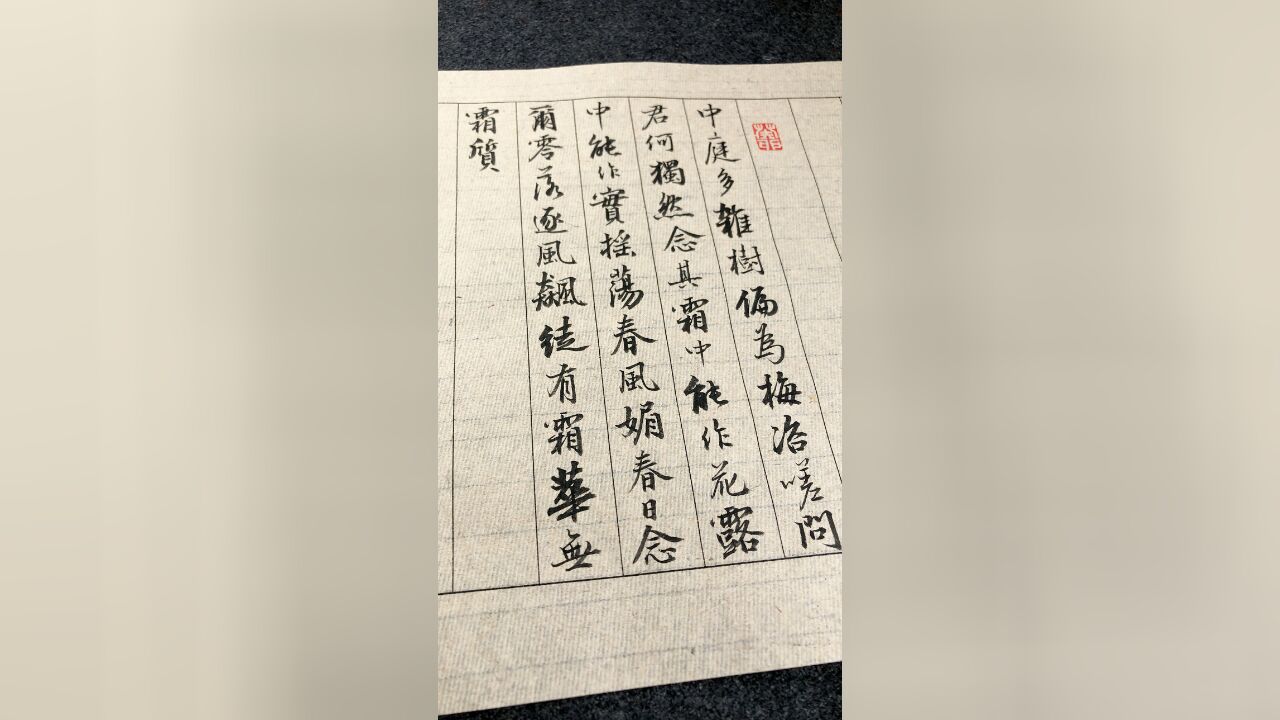 中庭多雜樹偏為梅咨嗟問
君何獨然念其霜中能作花露
中能作實摇蕩春風媚春日念
爾零落逐風飆徒有霜華無
霜質